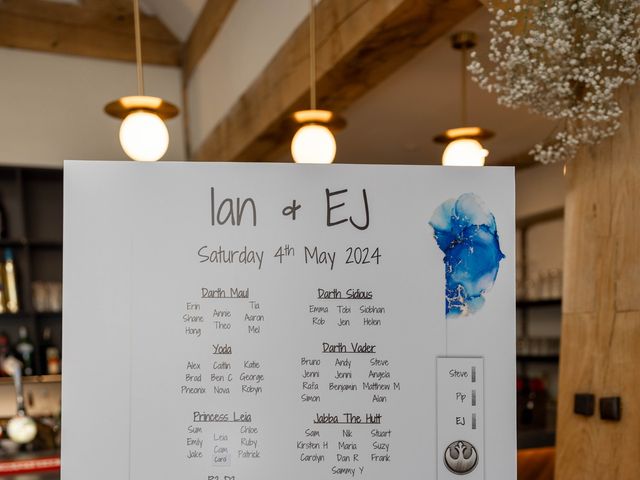 Ian & EJ
Saturday 4th May 2024
Darth Maul
Erin Annie Tia
Shane Theo Aaron
Hong Mel
Darth Sidious
Emma Tobi Siobhan
Rob Jen Helen
Yoda
Alex Caitlin Katie
Brad Ben C George
Pheonix Nova Robyn
Darth Vader
Bruno Andy Steve
Jenni Jenni Angela
Rafa Benjamin Matthew M
Simon Alan
Princess Leia
Sum Leia Chloe
Emily Cam Ruby
Jake Carol Patrick
Jabba The Hutt
Sam Nik Stuart
Kirsten H Maria Suzy
Carolyn Dan R Frank
Sammy Y
R2 D2
Steve
Pip
EJ